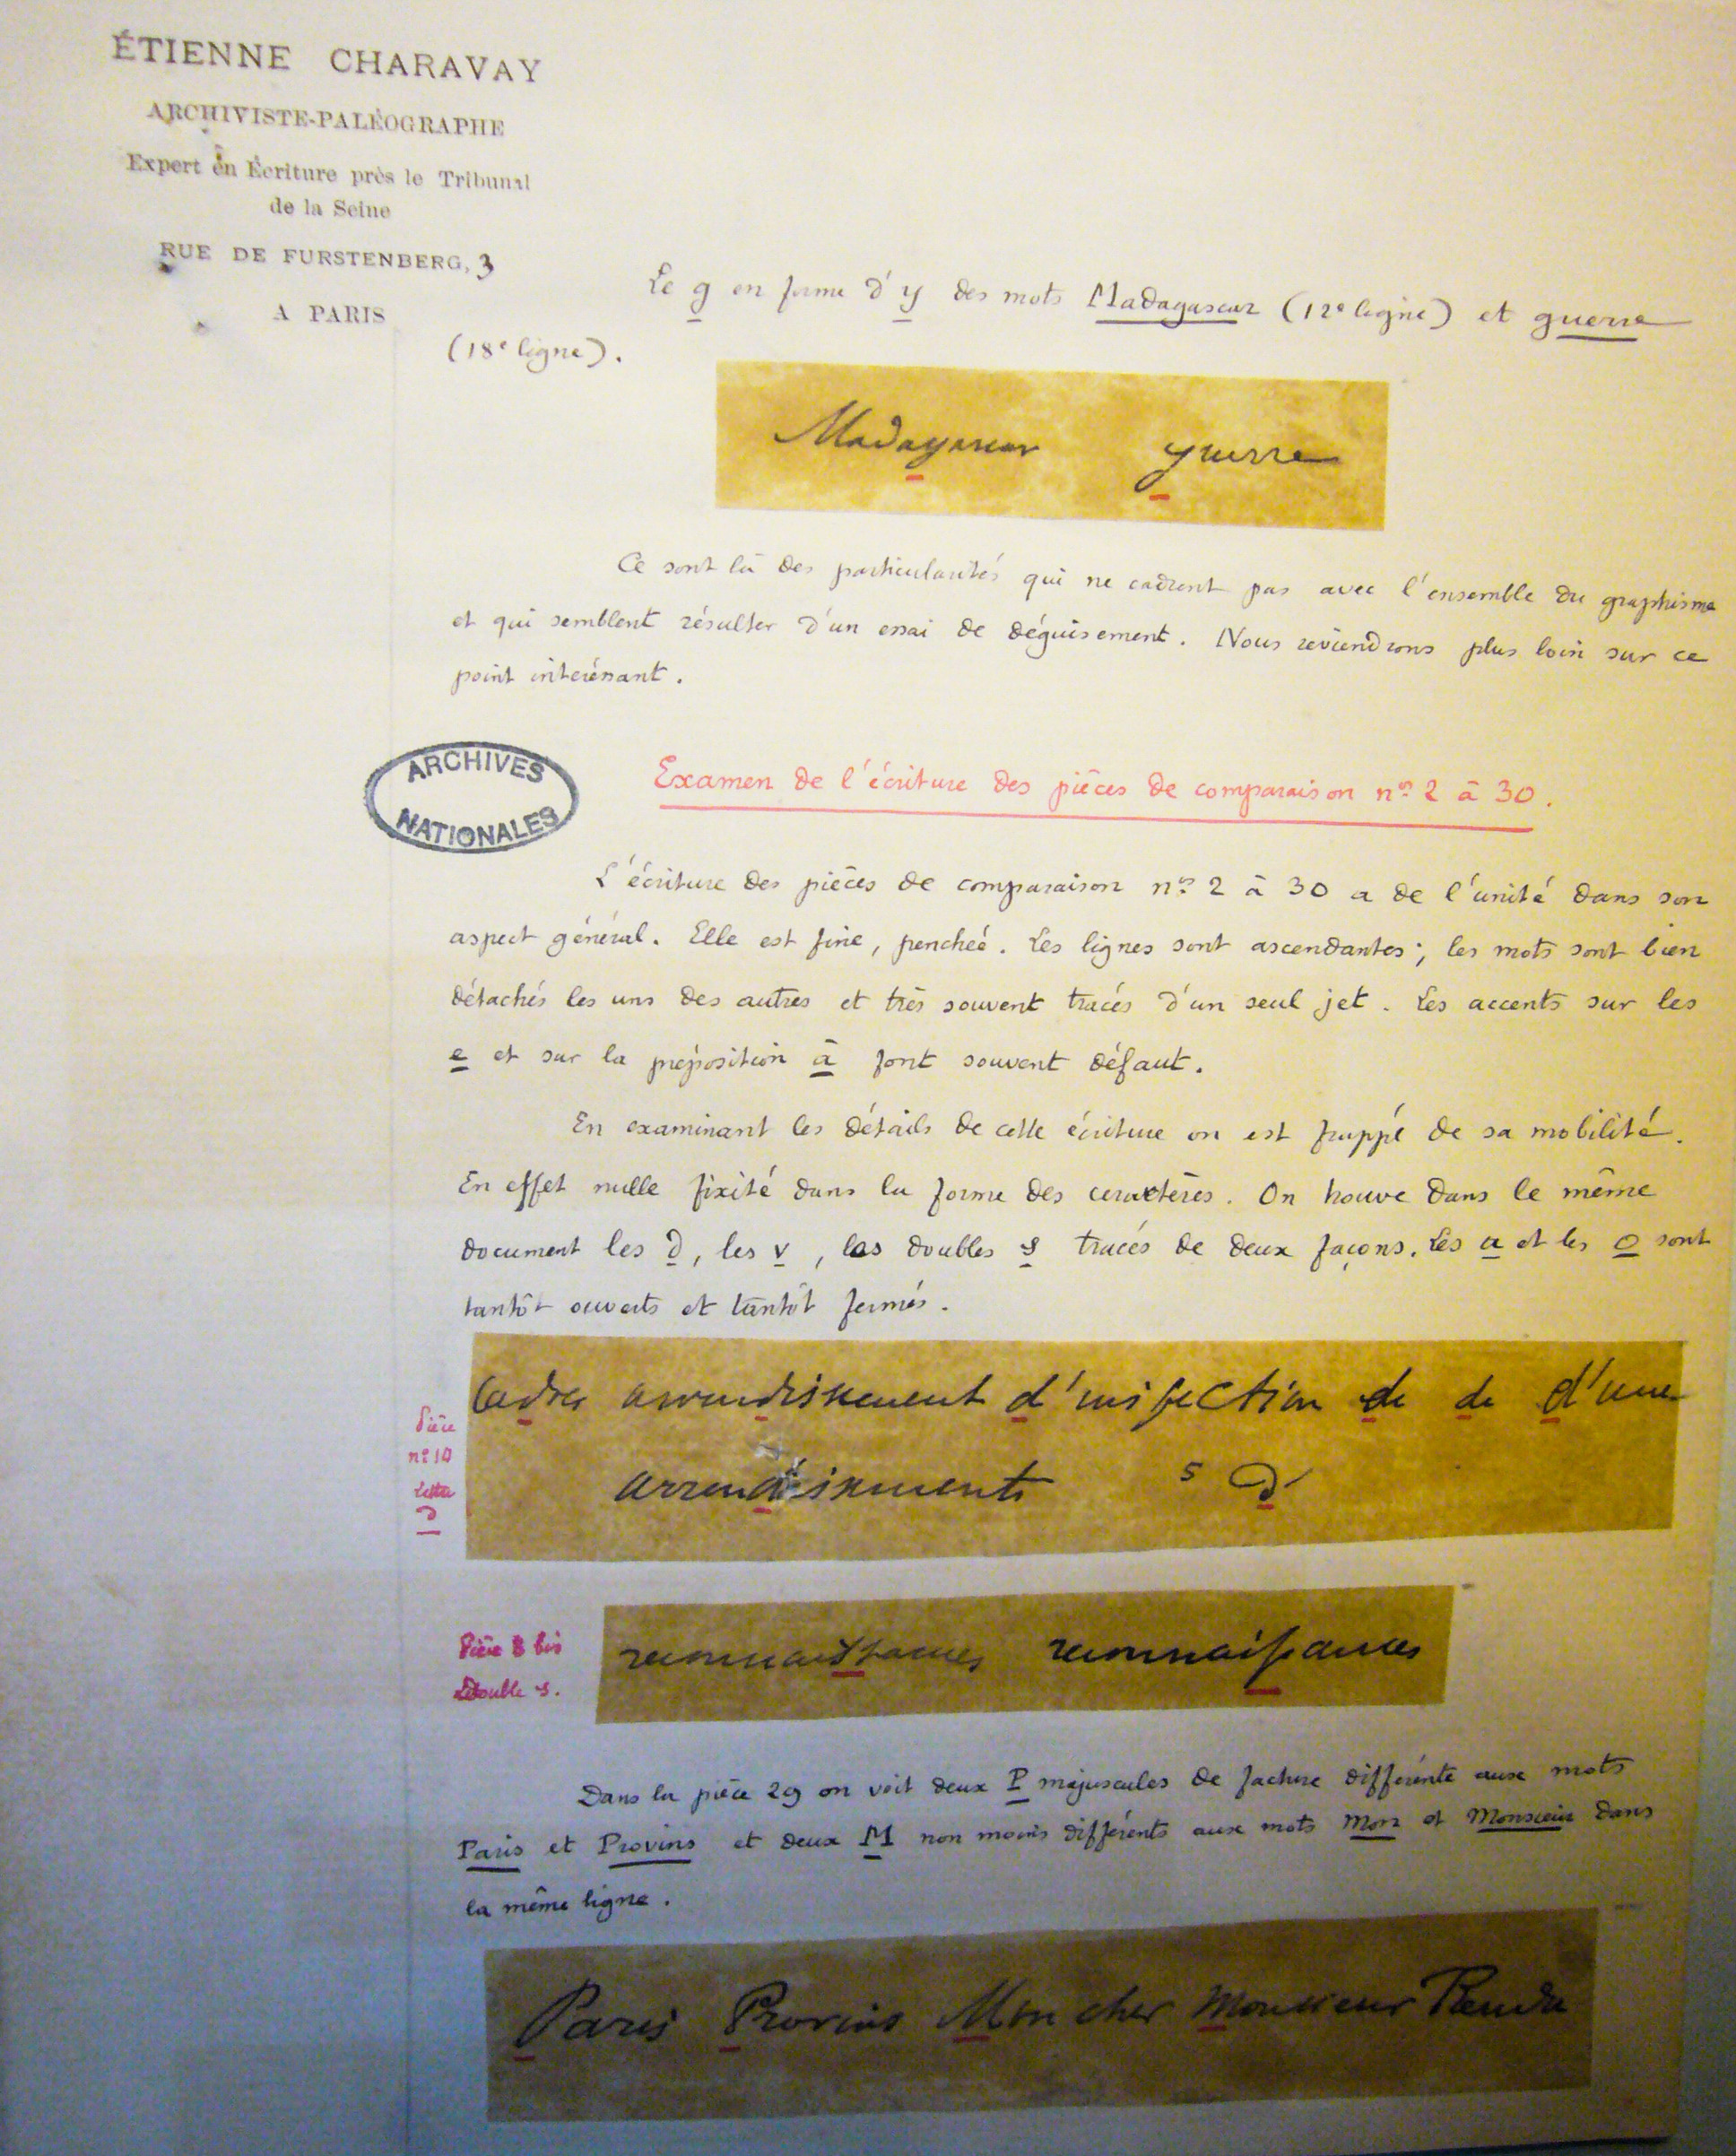 ÉTIENNE CHARAVAY
ARCHIVISTE-PALÉOGRAPHE
Expert en Écriture près le Tribunal
de la Seine
RUE DE FURSTENBERG, 3
A PARIS
Le g en forme d'y des mots Madagascar (12e ligne) et guerre
(18e ligne).
Madagascar guerre
Ce sont là des particularités qui ne cadrent pas avec l'ensemble du graphisme
et qui semblent résulter d'un essai de déguisement. Nous reviendrons plus loin sur ce
point intéressant.
ARCHIVES
NATIONALES
Examen de l'écriture des pièces de comparaison nos 2 à 30.
L'écriture des pièces de comparaison nos 2 à 30 a de l'unité dans son
aspect général. Elle est fine, penchée. Les lignes sont ascendantes; les mots sont bien
détachés les uns des autres et très souvent tracés d'un seul jet. Les accents sur les
e et sur la préposition à font souvent défaut.
En examinant les détails de cette écriture on est frappé de sa mobilité.
En effet nulle fixité dans la forme des caractères. On trouve dans le même
document les d, les v, les doubles s tracés de deux façons. Les a et les o sont
tantôt ouverts et tantôt fermés.
Cadres arrondissement d'inspection de de d'une
Pièce
n° 10
lettre
d
arrondissements 5 d
Pièce 8 bis
Double s.
reconnaissances reconnaissances
Dans la pièce 29 on voit deux P majuscules de facture différente aux mots
Paris et Provins et deux M non moins différents aux mots Mon et Monsieur dans
la même ligne.
Paris Provins Mon cher Monsieur